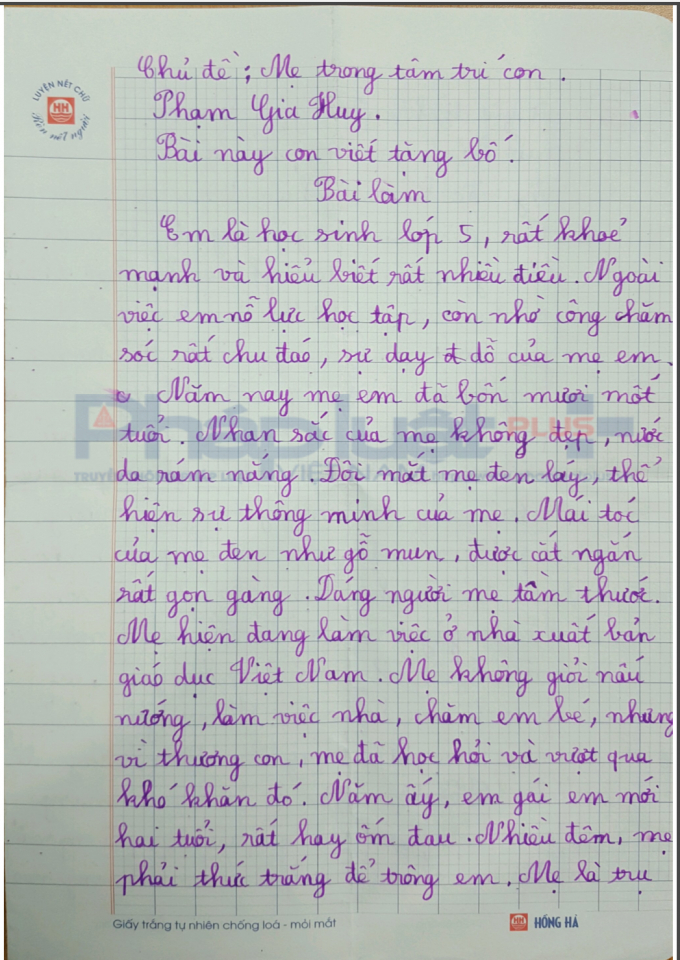 LUYỆN NÉT CHỮ
HH
Rèn nết người
Chủ đề: Mẹ trong tâm trí con.
Phạm Gia Huy.
Bài này con viết tặng bố.
Bài làm
Em là học sinh lớp 5, rất khoẻ
mạnh và hiểu biết rất nhiều điều. Ngoài
việc em nỗ lực học tập, còn nhờ công chăm
sóc rất chu đáo, sự dạy dỗ của mẹ em.
Năm nay mẹ em đã bốn mươi mốt
tuổi. Nhan sắc của mẹ không đẹp, nước
da rám nắng. Đôi mắt mẹ đen láy, thể
hiện sự thông minh của mẹ. Mái tóc
của mẹ đen như gỗ mun, được cắt ngắn
rất gọn gàng. Dáng người mẹ tầm thước.
Mẹ hiện đang làm việc ở nhà xuất bản
giáo dục Việt Nam. Mẹ không giỏi nấu
nướng, làm việc nhà, chăm em bé, nhưng
vì thương con, mẹ đã học hỏi và vượt qua
khó khăn đó. Năm ấy, em gái em mới
hai tuổi, rất hay ốm đau. Nhiều đêm, mẹ
phải thức trắng để trông em. Mẹ là trụ
Pháp luật PLUS
Giấy trắng tự nhiên chống loá - mỏi mắt
HH HỒNG HÀ